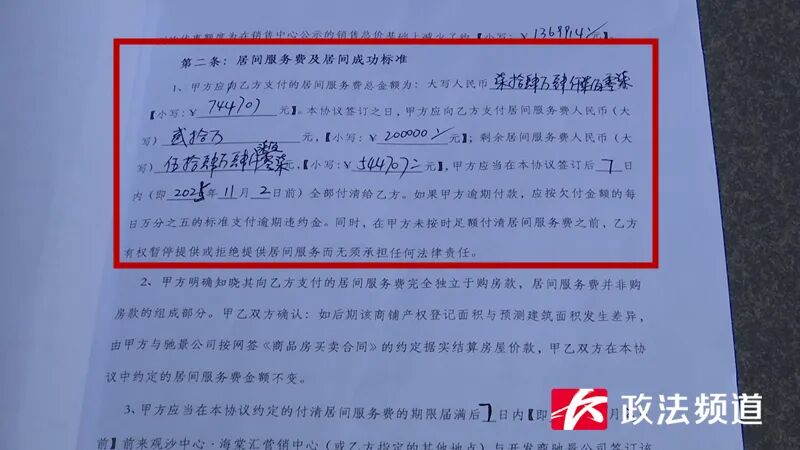 的优惠额度为在销售中心公示的销售总价基础上减少了约【小写:￥1369914/元】。
第二条：居间服务费及居间成功标准
1、甲方应向乙方支付的居间服务费总金额为：大写人民币 柒拾肆万肆仟柒佰零柒
【小写:￥744707元】。本协议签订之日，甲方应向乙方支付居间服务费人民币（大
写）贰拾万元，【小写:￥200000/元】；剩余居间服务费人民币（大
写）伍拾肆万肆仟柒佰零柒元，【小写:￥544707/元】，甲方应当在本协议签订后7日
内（即2025年11月2日前）全部付清给乙方。如果甲方逾期付款，应按欠付金额的每
日万分之五的标准支付逾期违约金。同时，在甲方未按时足额付清居间服务费之前，乙方
有权暂停提供或拒绝提供居间服务而无须承担任何法律责任。
2、甲方明确知晓其向乙方支付的居间服务费完全独立于购房款，居间服务费并非购
房款的组成部分。甲乙双方确认：如后期该商铺产权登记面积与预测建筑面积发生差异，
由甲方与驰景公司按网签《商品房买卖合同》的约定据实结算房屋价款，甲乙双方在本协
议中约定的居间服务费金额不变。
3、甲方应当在本协议约定的付清居间服务费的期限届满后7日内【即
前】前来观沙中心·海棠汇营销中心（或乙方指定的其他地点）与开发商驰景公司签订该
政法频道